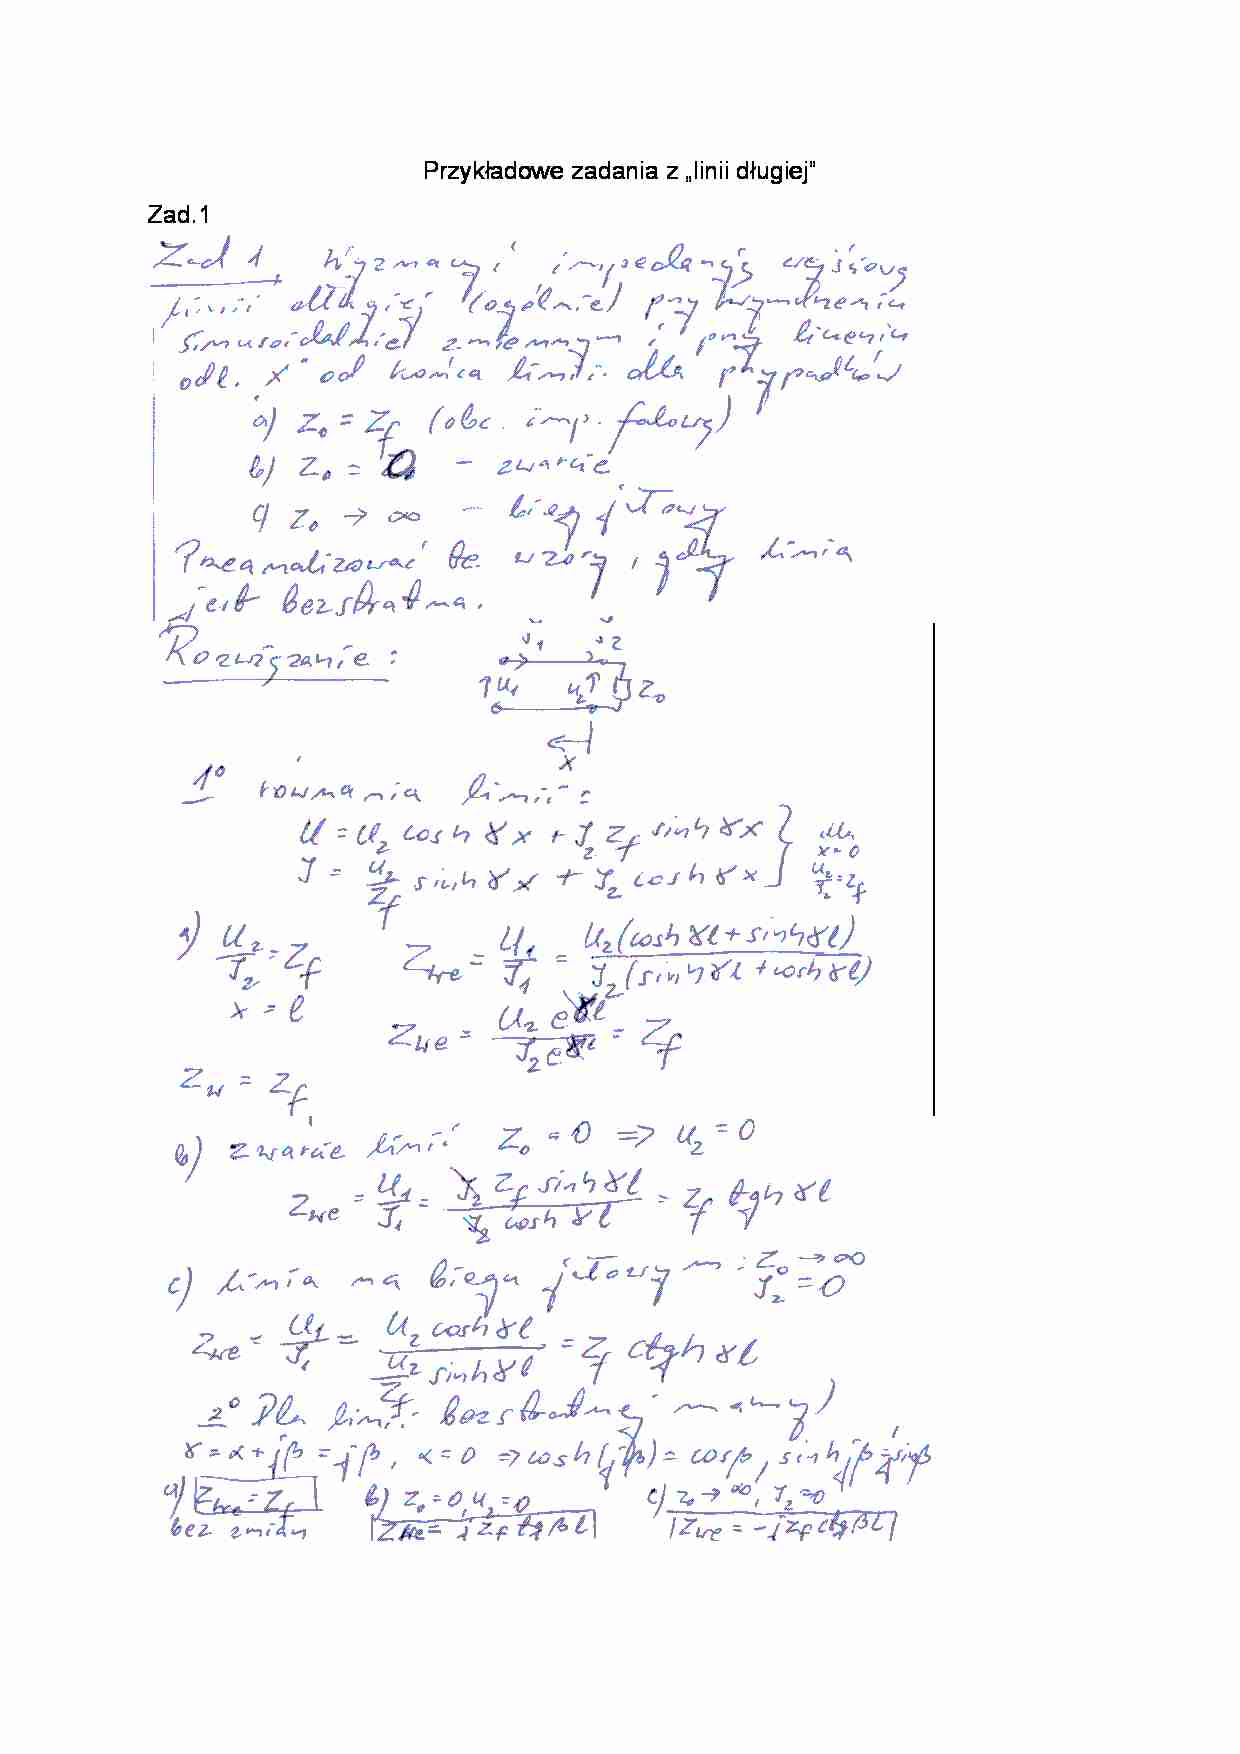 Przykładowe zadania z „linii długiej"
Zad.1
Zad 1 Wyznaczyć impedancję wejściową
linii długiej (ogólnie) przy wymuszeniu
sinusoidalnie zmiennym i przy liczeniu
odl. "x" od końca linii. dla przypadków
a) Z₀ = Z_f (obc. imp. falową)
b) Z₀ = 0 - zwarcie
c) Z₀ → ∞ - bieg jałowy
Przeanalizować te wzory, gdy linia
jest bezstratna.
Rozwiązanie:
J₁ J₂
↑U₁ U₂↑ Z₀
x
1° równania linii:
U = U₂ cosh γx + J₂ Z_f sinh γx } dla x=0
J = U₂/Z_f sinh γx + J₂ cosh γx } U₂/J₂ = Z_f
a) U₂/J₂ = Z_f Z_we = U₁/J₁ = U₂(cosh γl + sinh γl) / J₂(sinh γl + cosh γl)
x = l Z_we = U₂ e^γl / J₂ e^γl = Z_f
Z_w = Z_f
b) zwarcie linii Z₀ = 0 => U₂ = 0
Z_we = U₁/J₁ = J₂ Z_f sinh γl / J₂ cosh γl = Z_f tgh γl
c) linia na biegu jałowym: Z₀ → ∞ J₂ = 0
Z_we = U₁/J₁ = U₂ cosh γl / (U₂/Z_f sinh γl) = Z_f ctgh γl
2° Dla linii bezstratnej mamy)
γ = α + jβ = jβ, α = 0 => cosh(jβ) = cosβ, sinh jβ = j sinβ
a) Z_we = Z_f b) Z₀ = 0, U₂ = 0 c) Z₀ → ∞, J₂ = 0
bez zmian Z_we = j Z_f tg βl Z_we = -j Z_f ctg βl